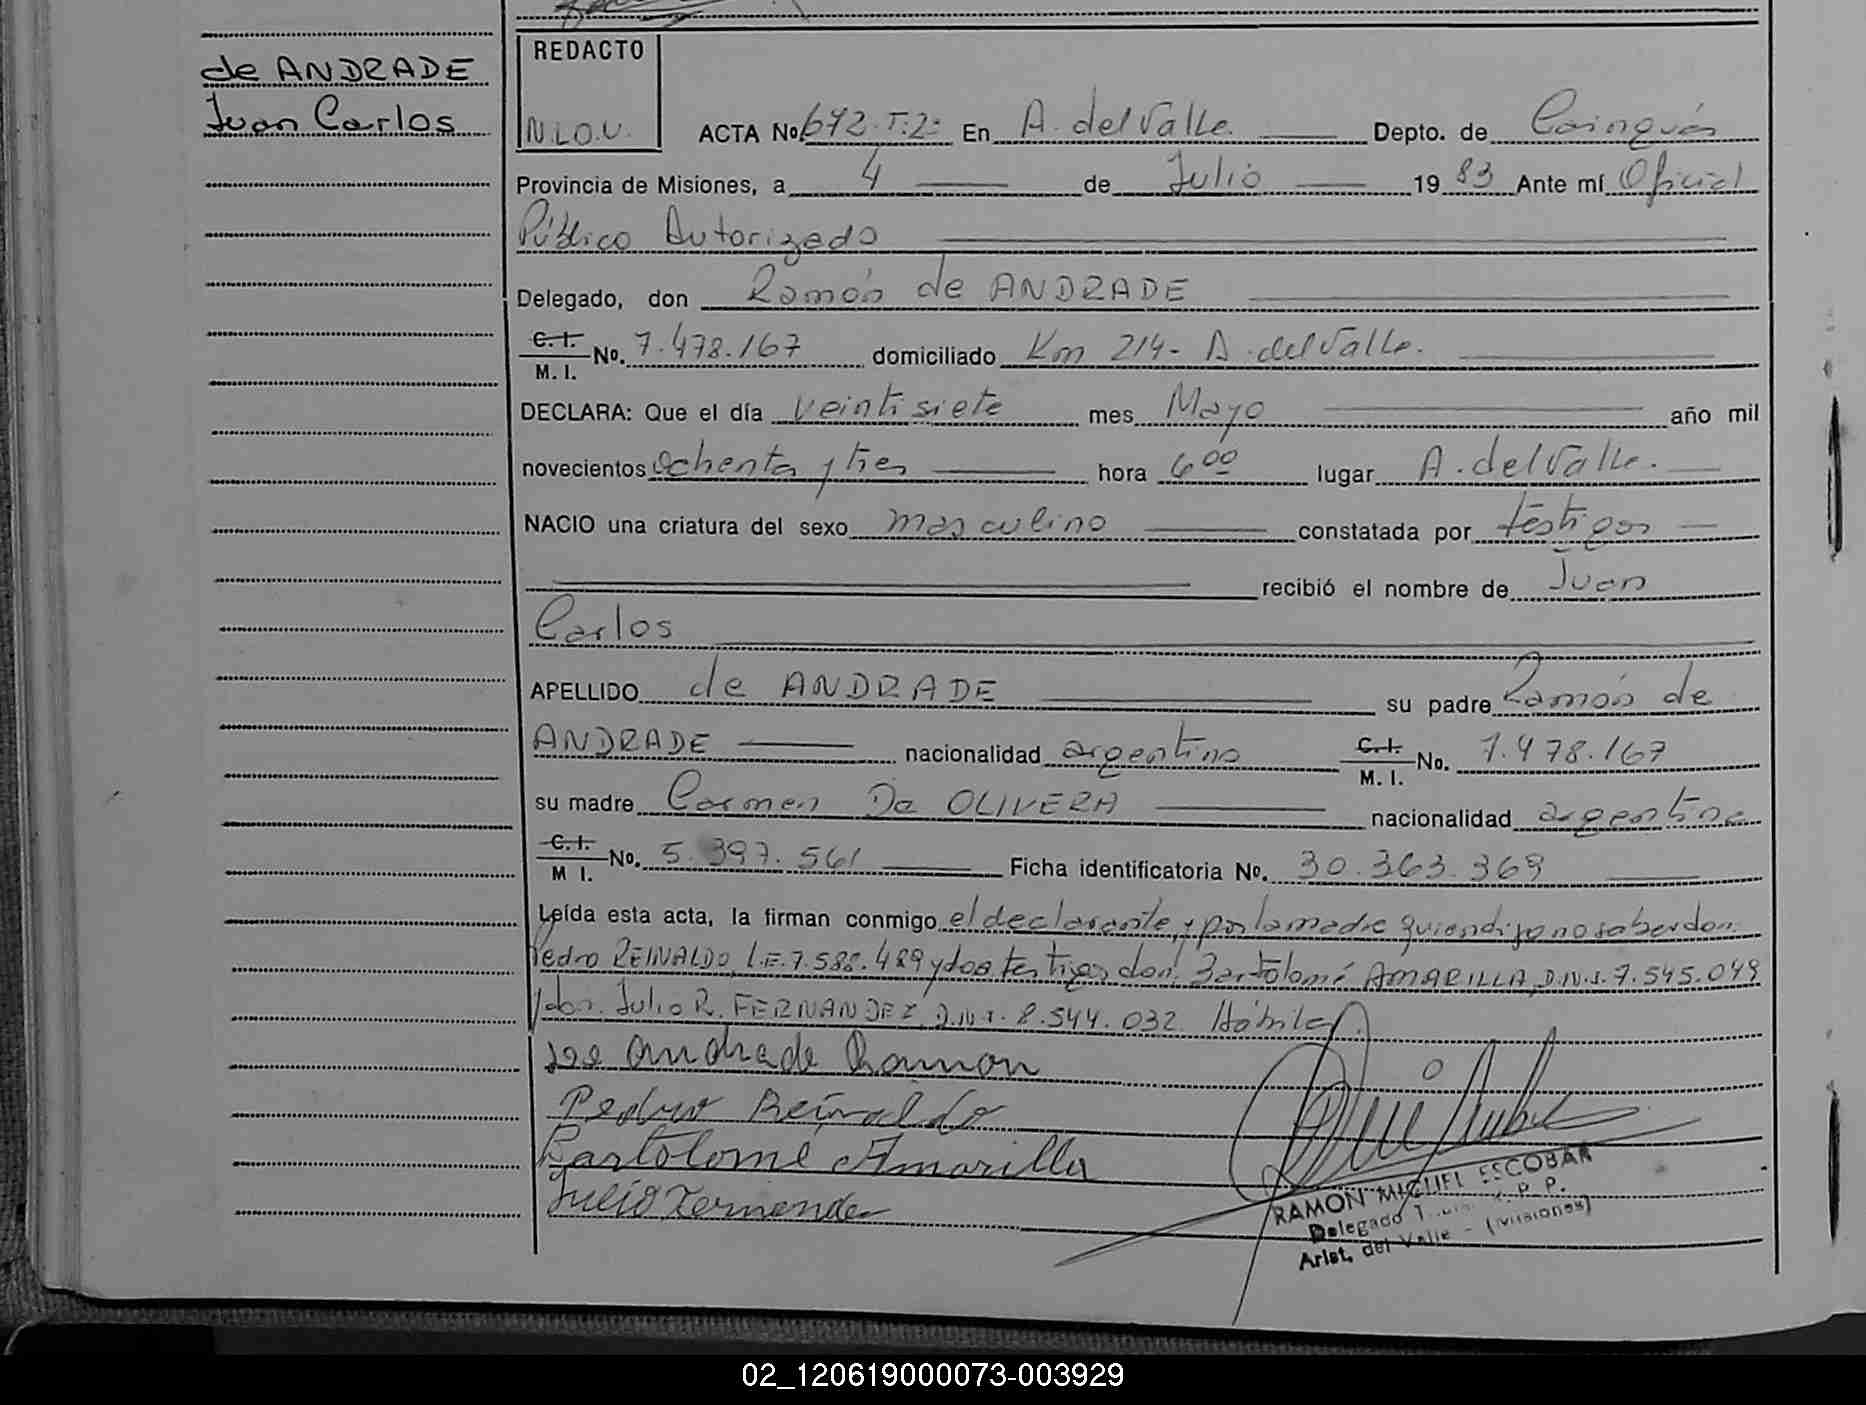 de ANDRADE
Juan Carlos
REDACTO
N.L.O.V.
ACTA No. 692-T:2º En A. del Valle. Depto. de Cainguás
Provincia de Misiones, a 4 de Julio 19 83 Ante mí Oficial
Público Autorizado
Delegado, don Ramón de ANDRADE
C. I. M. I. No. 7.478.167 domiciliado Km 214- A. del Valle.
DECLARA: Que el día veintisiete mes Mayo año mil
novecientos ochenta y tres hora 6 00 lugar A. del Valle.
NACIO una criatura del sexo masculino constatada por testigos
recibió el nombre de Juan
Carlos
APELLIDO de ANDRADE su padre Ramón de
ANDRADE nacionalidad argentino C. I. M. I. No. 7.478.167
su madre Carmen Da OLIVERA nacionalidad argentina
C. I. M I. No. 5.397.561 Ficha identificatoria No. 30.363.369
Leída esta acta, la firman conmigo el declarante, y por la madre quien dijo no saber don
Pedro REINALDO, L.E. 7.588.489 y dos testigos don: Bartolomé AMARILLA, D.N.I. 7.545.049
y don. Julio R. FERNANDEZ, D.N.I. 8.544.032. Hábiles.
de Andrade Ramon
Pedro Reinaldo
Bartolomé Amarilla
Julio Fernandez
RAMON MIGUEL ESCOBAR
Delegado R. P. P.
Arist. del Valle - (Misiones)
02_120619000073-003929